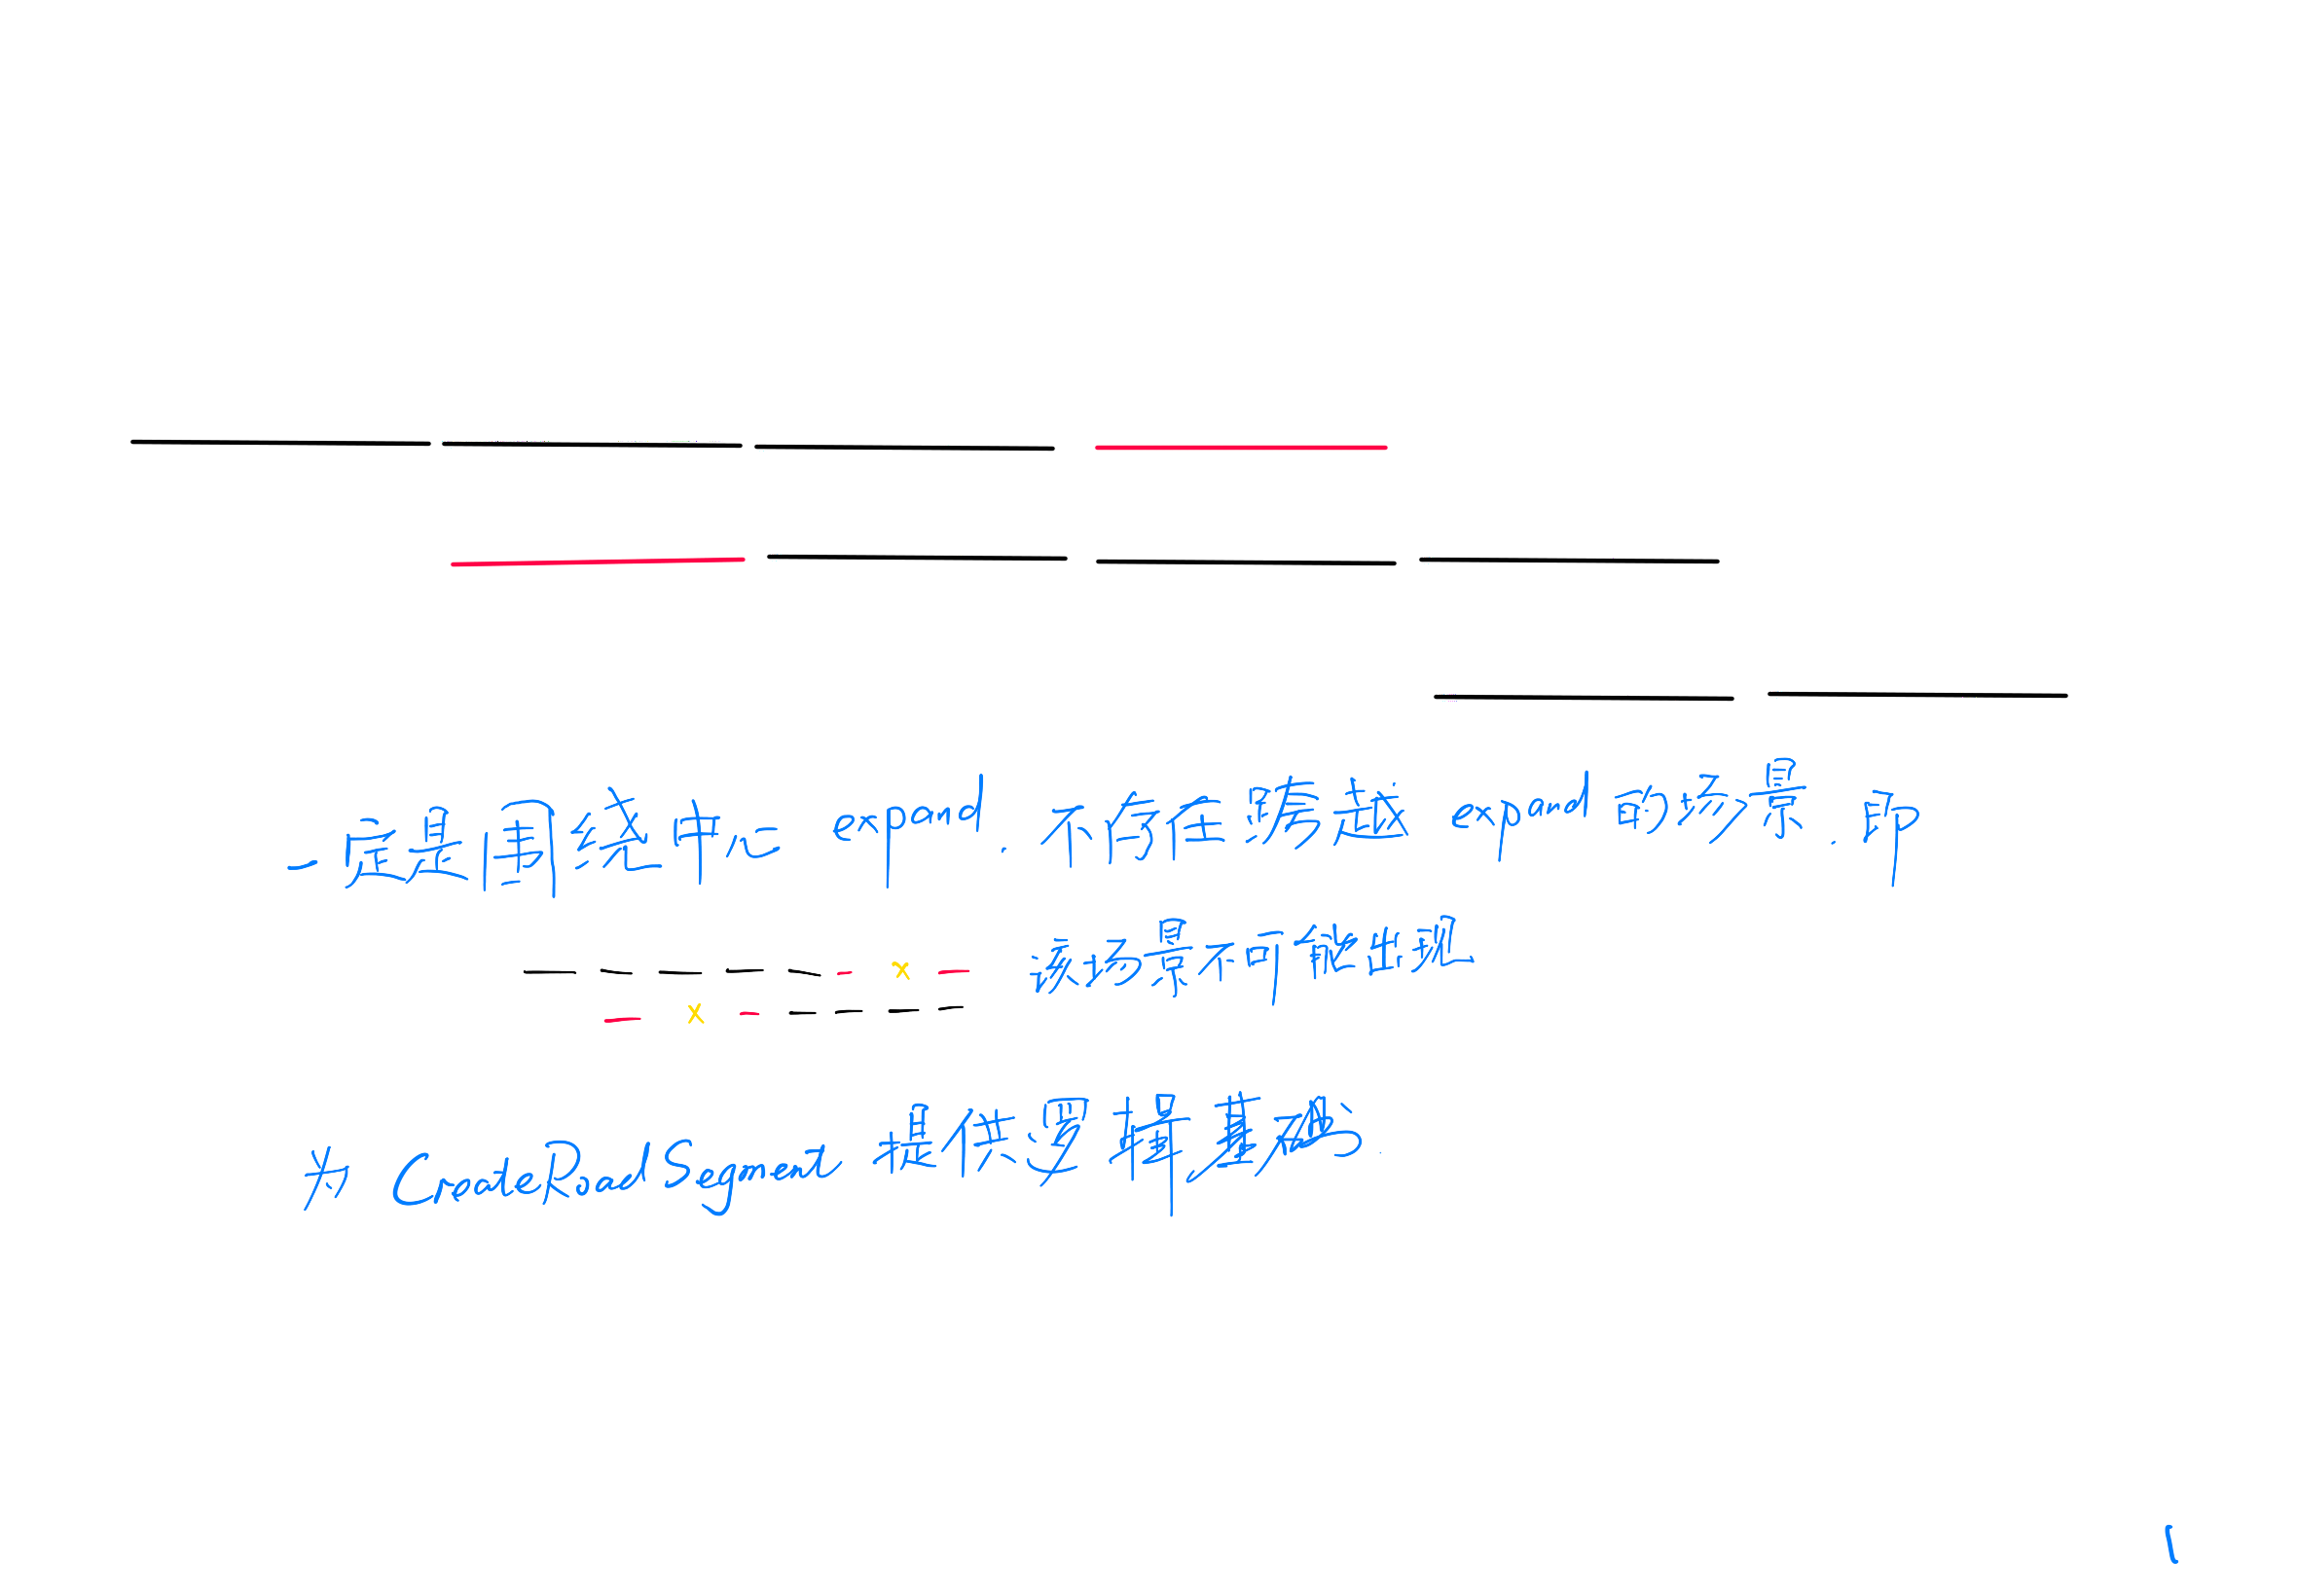 一定是围绕中心 expand. 不存在跨越 expand 的场景. 即
x 该场景不可能出现
x
为 CreateRoadSegment 提供逻辑基础.